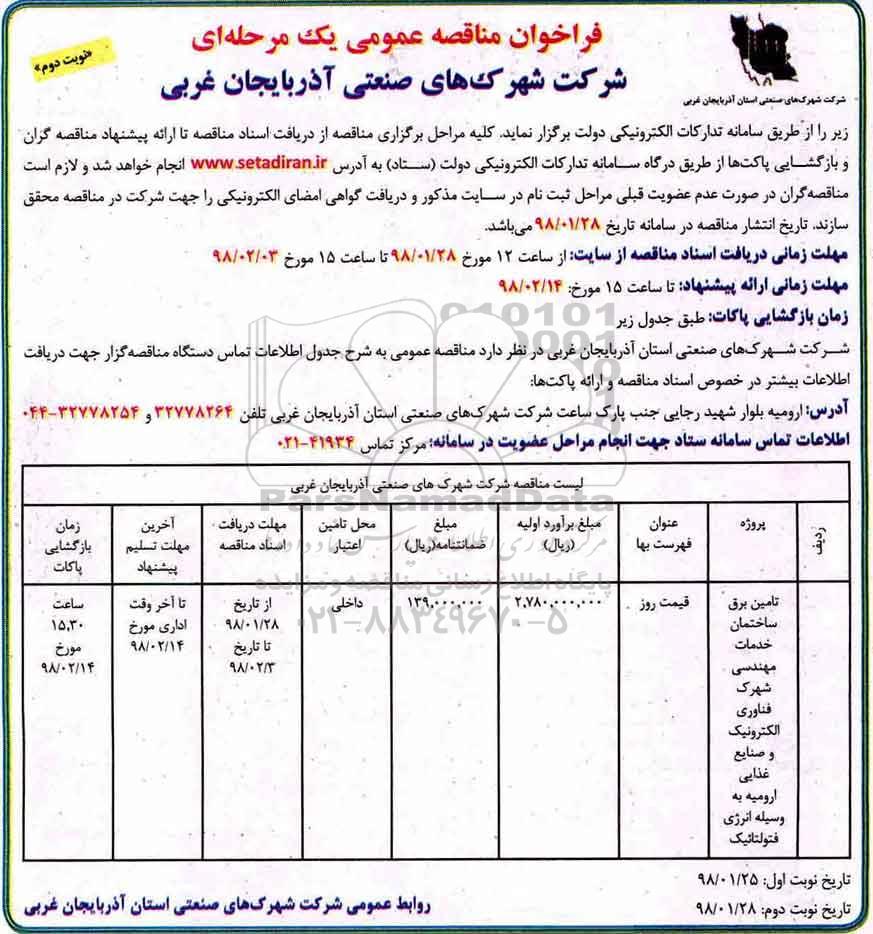 فراخوان مناقصه عمومی یک مرحله‌ای
شرکت شهرک‌های صنعتی آذربایجان غربی
«نوبت دوم»
شرکت شهرک‌های صنعتی استان آذربایجان غربی
زیر را از طریق سامانه تدارکات الکترونیکی دولت برگزار نماید. کلیه مراحل برگزاری مناقصه از دریافت اسناد مناقصه تا ارائه پیشنهاد مناقصه گران
و بازگشایی پاکت‌ها از طریق درگاه سامانه تدارکات الکترونیکی دولت (ستاد) به آدرس www.setadiran.ir انجام خواهد شد و لازم است
مناقصه‌گران در صورت عدم عضویت قبلی مراحل ثبت نام در سایت مذکور و دریافت گواهی امضای الکترونیکی را جهت شرکت در مناقصه محقق
سازند. تاریخ انتشار مناقصه در سامانه تاریخ ۹۸/۰۱/۲۸ می‌باشد.
مهلت زمانی دریافت اسناد مناقصه از سایت: از ساعت ۱۲ مورخ ۹۸/۰۱/۲۸ تا ساعت ۱۵ مورخ ۹۸/۰۲/۰۳
مهلت زمانی ارائه پیشنهاد: تا ساعت ۱۵ مورخ: ۹۸/۰۲/۱۴
زمان بازگشایی پاکات: طبق جدول زیر
شرکت شهرک‌های صنعتی استان آذربایجان غربی در نظر دارد مناقصه عمومی به شرح جدول اطلاعات تماس دستگاه مناقصه‌گزار جهت دریافت
اطلاعات بیشتر در خصوص اسناد مناقصه و ارائه پاکت‌ها:
آدرس: ارومیه بلوار شهید رجایی جنب پارک ساعت شرکت شهرک‌های صنعتی استان آذربایجان غربی تلفن ۳۲۷۷۸۲۶۴ و ۳۲۷۷۸۲۵۴-۰۴۴
اطلاعات تماس سامانه ستاد جهت انجام مراحل عضویت در سامانه: مرکز تماس ۴۱۹۳۴-۰۲۱
لیست مناقصه شرکت شهرک های صنعتی آذربایجان غربی
ردیف
پروژه
عنوان فهرست بها
مبلغ برآورد اولیه (ریال)
مبلغ ضمانتنامه(ریال)
محل تامین اعتبار
مهلت دریافت اسناد مناقصه
آخرین مهلت تسلیم پیشنهاد
زمان بازگشایی پاکات
تامین برق
ساختمان
خدمات
مهندسی
شهرک
فناوری
الکترونیک
و صنایع
غذایی
ارومیه به
وسیله انرژی
فتولتائیک
قیمت روز
۲.۷۸۰.۰۰۰.۰۰۰
۱۳۹.۰۰۰.۰۰۰
داخلی
از تاریخ
۹۸/۰۱/۲۸
تا تاریخ
۹۸/۰۲/۳
تا آخر وقت
اداری مورخ
۹۸/۰۲/۱۴
ساعت
۱۵,۳۰
مورخ
۹۸/۰۲/۱۴
ParsNamadData
پایگاه اطلاع رسانی مناقصه و مزایده
۰۲۱-۸۸۳۴۹۶۷۰-۵
تاریخ نوبت اول: ۹۸/۰۱/۲۵
تاریخ نوبت دوم: ۹۸/۰۱/۲۸
روابط عمومی شرکت شهرک‌های صنعتی استان آذربایجان غربی